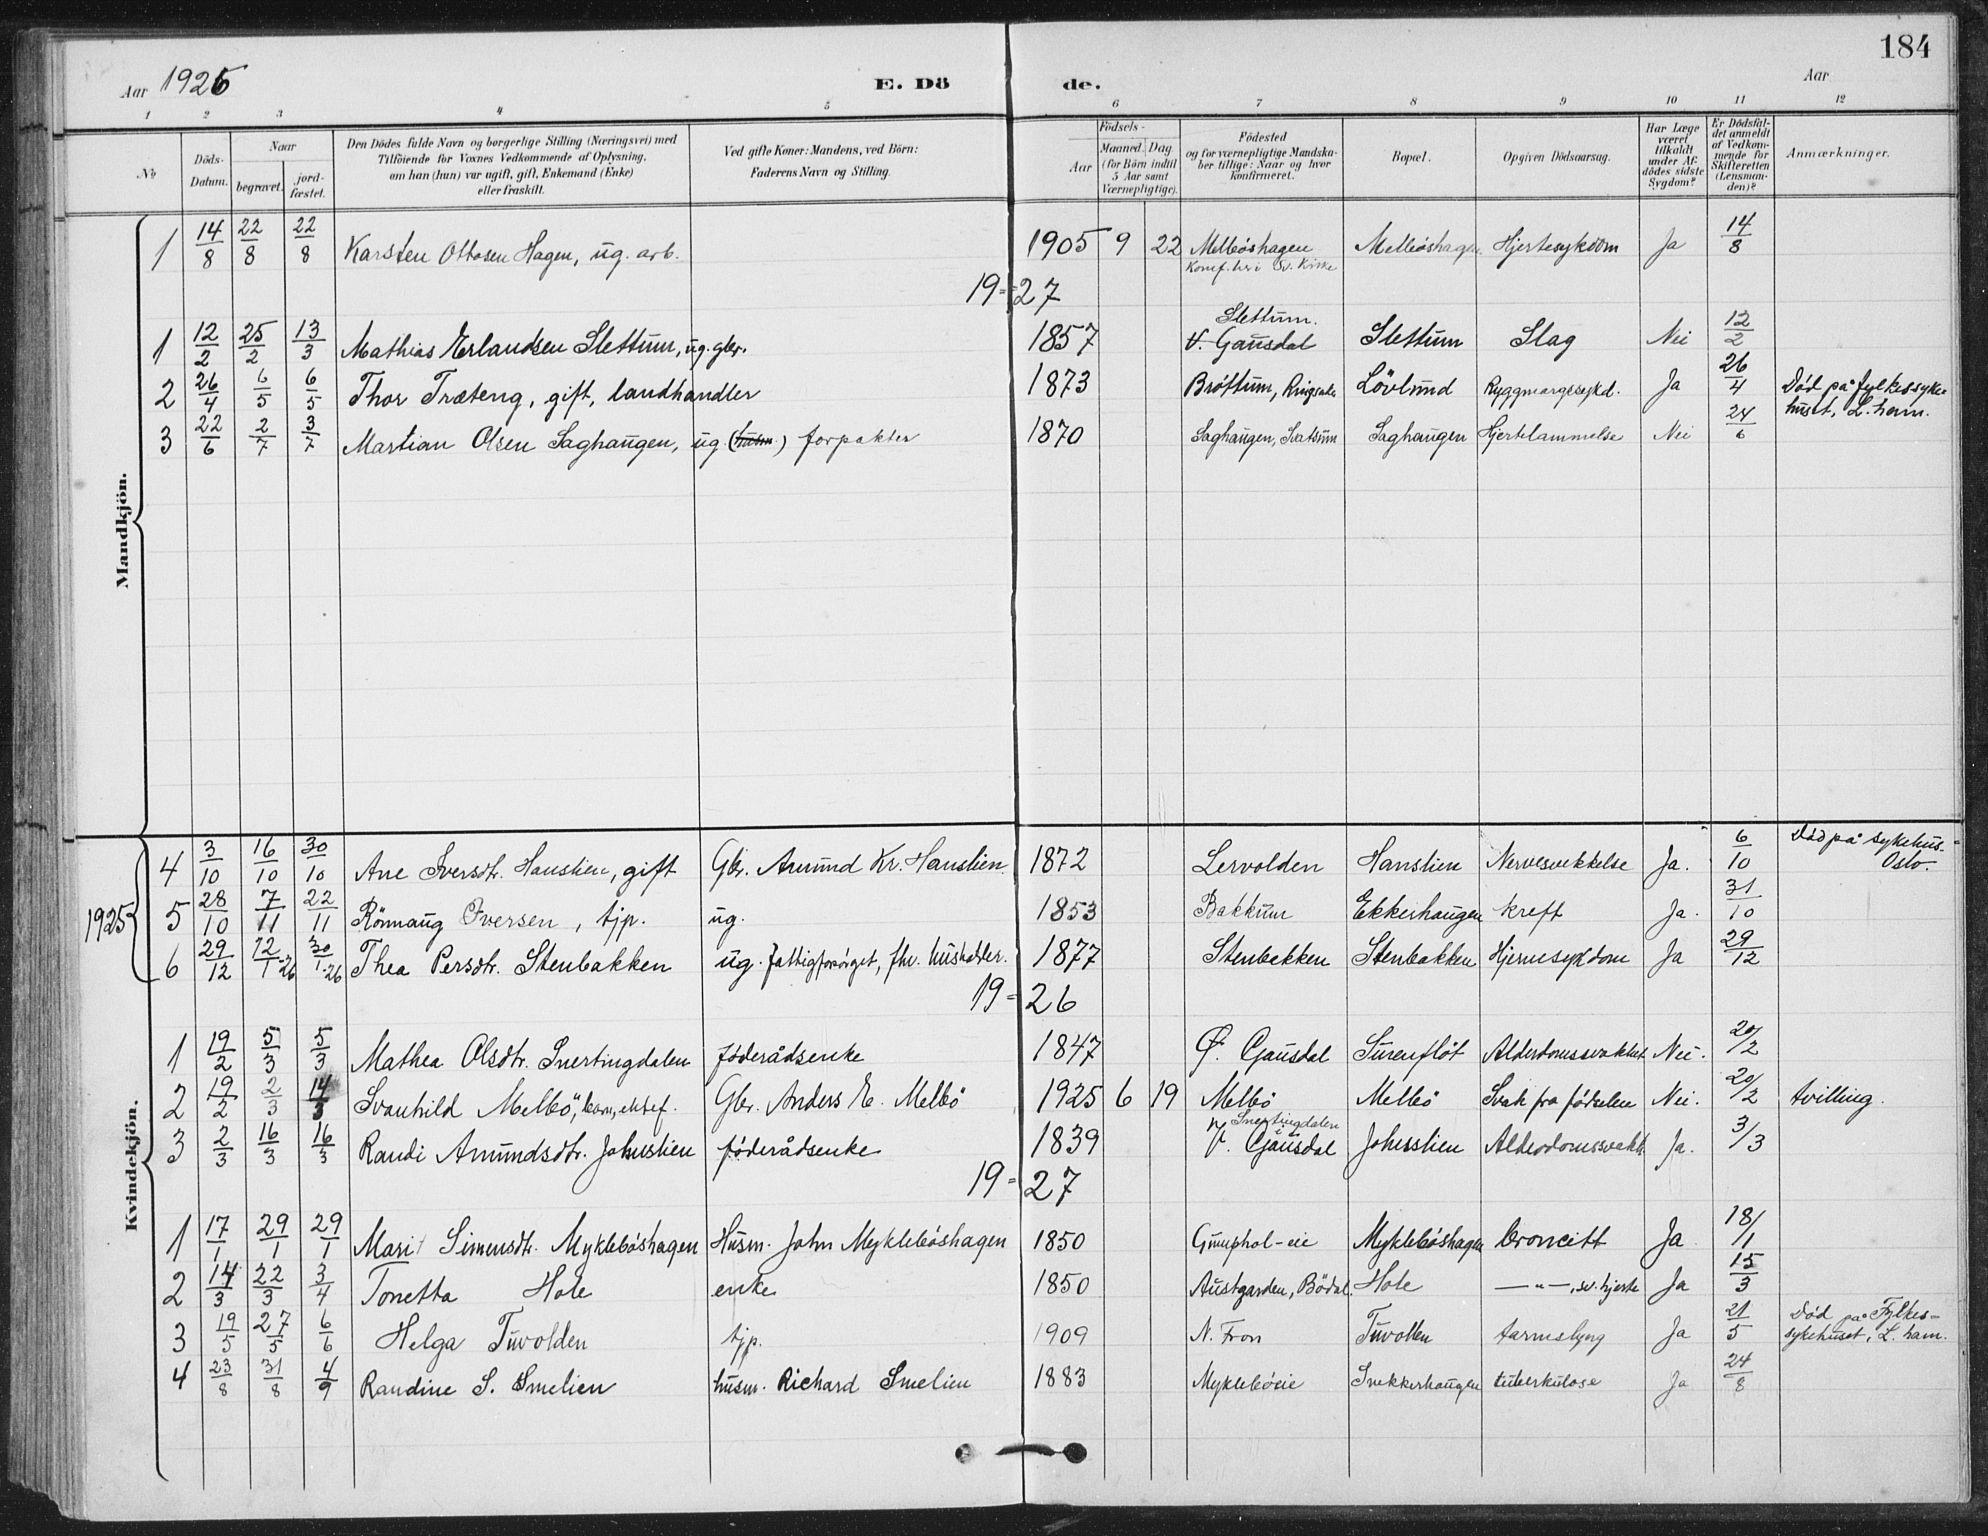 184
Aar 1926 E. Dö de. Aar
1 2 3 4 5 6 7 8 9 10 11 12
No
Döds-Datum.
Naar
begravet.
jord-fæstet.
Den Dödes fulde Navn og borgerlige Stilling (Næringsvei) med
Tilföiende for Voxnes Vedkommende af Oplysning,
om han (hun) var ugift, gift, Enkemand (Enke)
eller fraskilt.
Ved gifte Koner: Mandens, ved Börn:
Faderens Navn og Stilling.
Födsels-
Aar
Maaned. Dag.
(for Börn indtil
5 Aar samt
Værnepligtige).
Födested
og for værnepligtige Mandska-
ber tillige: Naar og hvor
konfirmeret.
Bopæl.
Opgiven Dödsaarsag.
Har Læge
været
tilkaldt
under Af-
dödes sidste
Sygdom?
Er Dödsfal-
det anmeldt
af Vedkom-
mende for
Skifteretten
(Lensman-
den)?
Anmærkninger.
Mandkjön.
1 14/8 22/8 22/8 Karsten Ottosen Hagen, ug. arb. 1905 9 22 Melböshagen Melböshagen Hjertesykdom Ja 14/8
Konf. her i Sv. Kirke
19=27
Slettum.
1 12/2 25/2 13/3 Mathias Erlandsen Slettum, ug. gbr. 1857 V. Gausdal Slettum Slag Nei 12/2
2 26/4 6/5 6/5 Thor Træteng, gift, landhandler 1873 Bröttum, Ringsaker Lövlund Ryggmargssykd. Ja 26/4 Död på fylkessyke-
huset, L.ham.
3 22/6 2/7 3/7 Martian Olsen Saghaugen, ug. (husm.) forpakter 1870 Saghaugen, Svatsum Saghaugen Hjertelammelse Nei 24/6
Kvindekjön.
1925
4 3/10 16/10 30/10 Ane Iversdtr. Hanslien, gift Gbr. Amund Kr. Hanslien 1872 Lervolden Hanslien Nervesvekkelse Ja. 6/10 Död på sykehus-
Oslo.
5 28/10 7/11 22/11 Römaug Iversen, tjp. ug. 1853 Bakkum Ekkerhaugen kreft Ja. 31/10
6 29/12 12/1-26 30/1-26 Thea Persdtr. Stenbakken ug. fattigforsörget, fhv. husholder. 1877 Stenbakken Stenbakken Hjernesykdom Ja 29/12
19=26
1 19/2 5/3 5/3 Mathea Olsdtr. Snertingdalen föderådsenke 1847 Ø. Gausdal Surenflöt Alderdomssvakhet Nei. 20/2
2 19/2 2/3 14/3 Svanhild Melbö, barn, ektef. Gbr. Anders E. Melbö 1925 6 19 Melbö Melbö Svak fra födselen Nei. 20/2 tvilling.
Snertingdalen i
3 2/3 16/3 16/3 Randi Amundsdtr. Johnslien föderådsenke 1839 V. Gausdal Johnslien Alderdomssvakh. Ja. 3/3
19=27
1 17/1 29/1 29/1 Marit Simensdtr. Mykleböshagen Husm. John Mykleböshagen 1850 Mykleböshagen broncitt Ja 18/1
2 14/3 22/3 3/4 Tonetta Hole enke 1850 Austgarden, Bödal Hole —"—, sv. hjerte Ja 15/3
3 19/5 27/5 6/6 Helga Tuvolden tjp. 1909 N. Fron Tuvollen tarmslyng Ja 21/5 Död på Fylkes-
sykehuset, L. ham.
4 23/8 31/8 4/9 Randine S. Smelien husm. Richard Smelien 1883 Mykleböeie Snekkerhaugen tuberkulose Ja 24/8